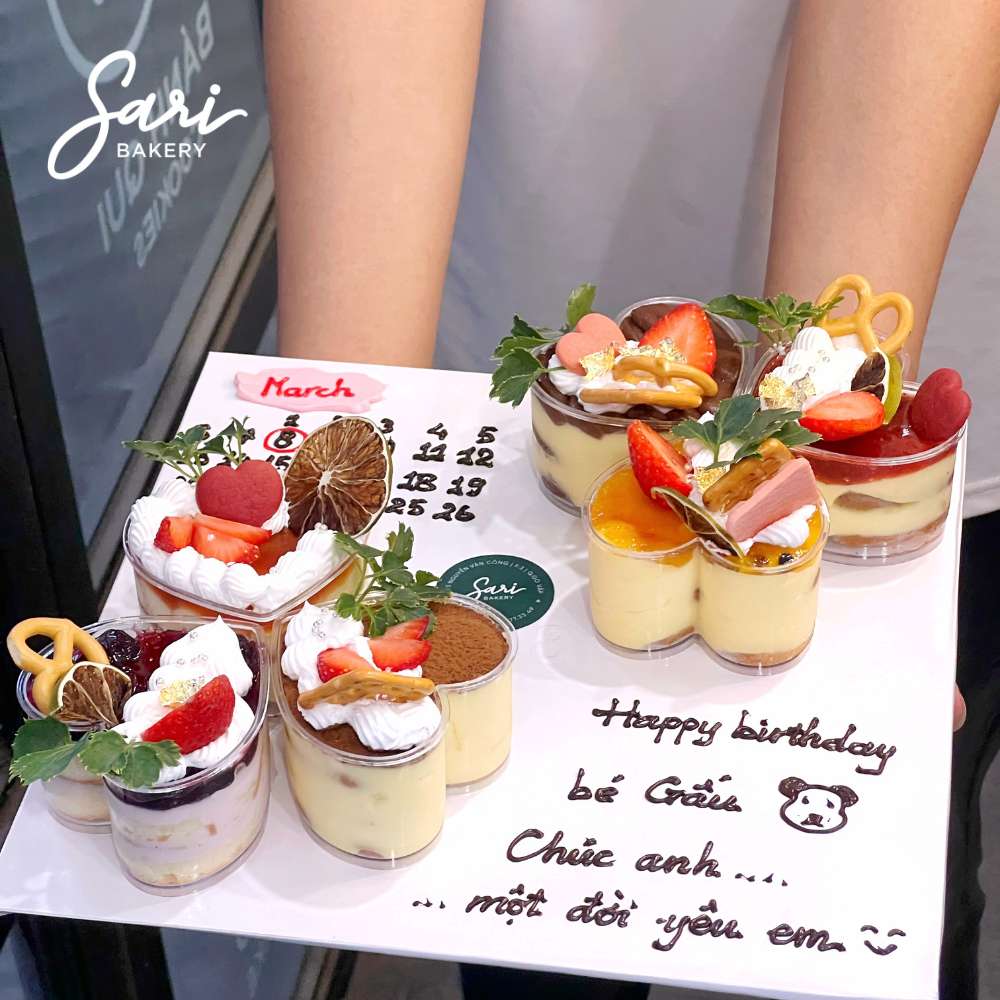 Sari
BAKERY
BÁNH QUI
COOKIES
March
3 4 5
8 11 12
18 19
25 26
NGUYỄN VĂN CÔNG
Sari
BAKERY
Happy birthday
bé Gấu
Chúc anh ....
... một đời yêu em